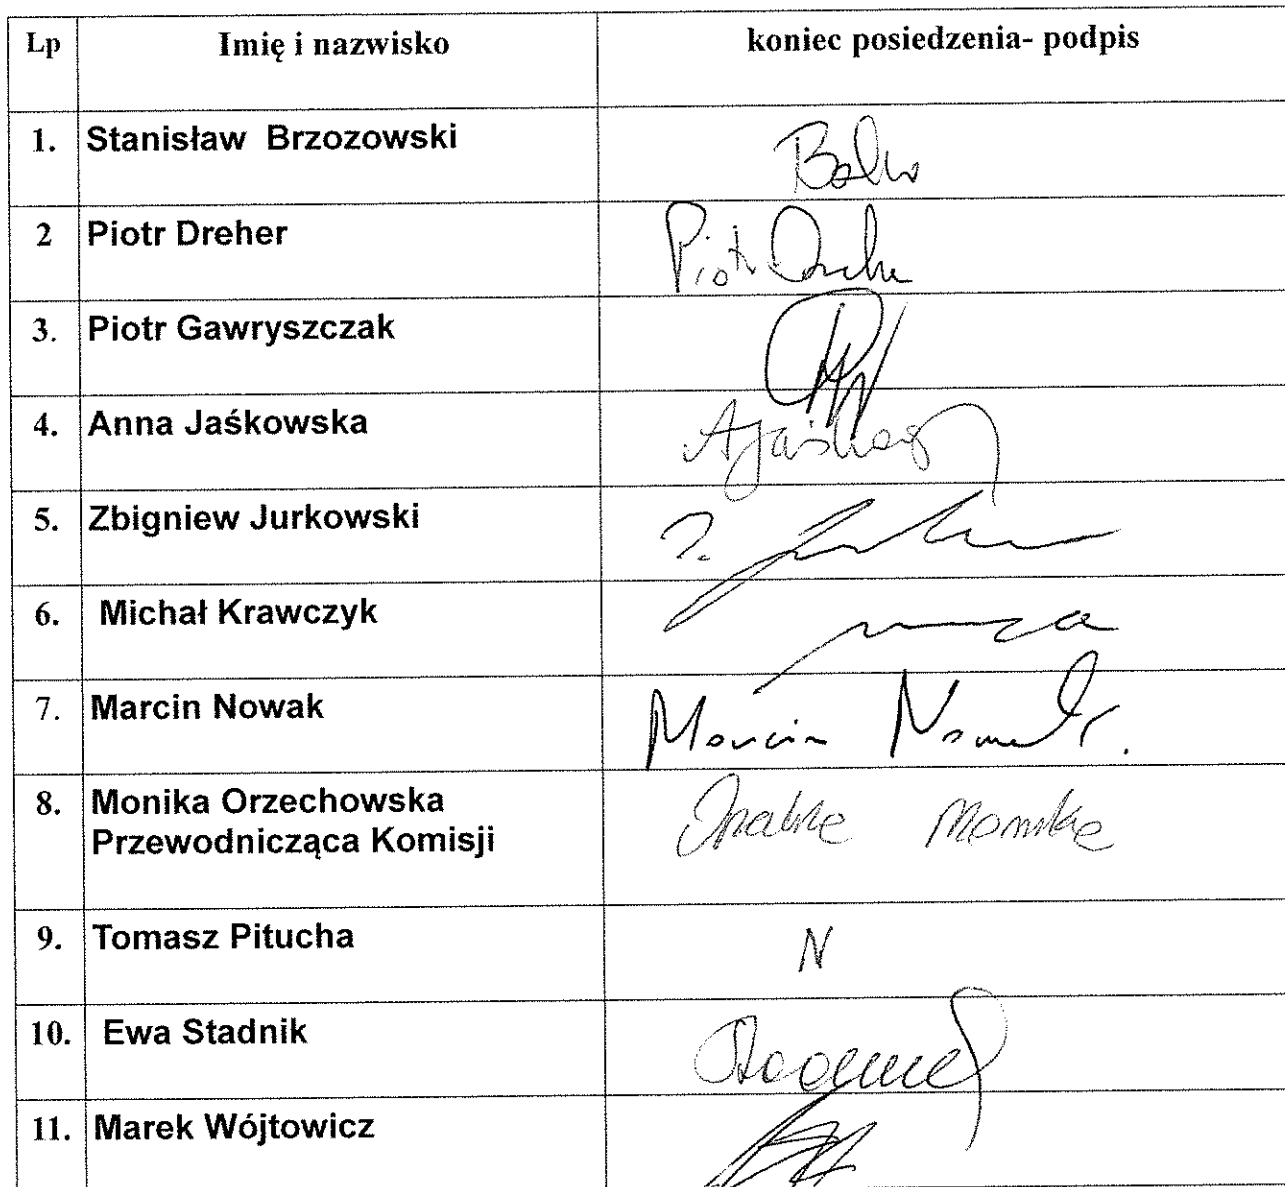 Lp Imię i nazwisko koniec posiedzenia- podpis
1. Stanisław Brzozowski
2 Piotr Dreher Piotr
3. Piotr Gawryszczak
4. Anna Jaśkowska
5. Zbigniew Jurkowski
6. Michał Krawczyk
7. Marcin Nowak Marcin Nowak
8. Monika Orzechowska
Przewodnicząca Komisji
9. Tomasz Pitucha N
10. Ewa Stadnik
11. Marek Wójtowicz